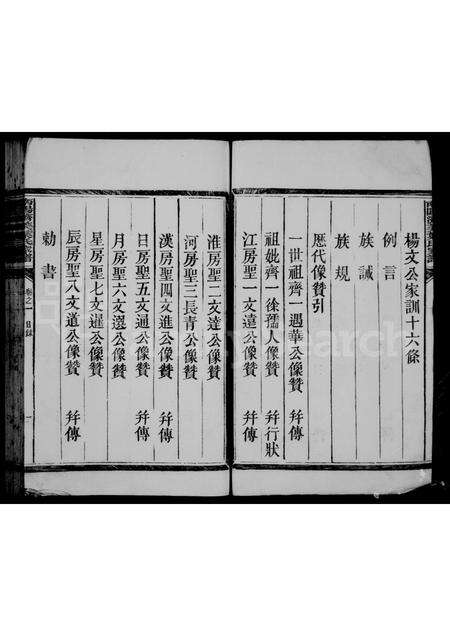 楊文公家訓十六條
例言
族誡
族規
歷代像贊引
一世祖齊一遇華公像贊 并傳
祖妣齊一徐孺人像贊 并行狀
江房聖一文遠公像贊 并傳
淮房聖二文達公像贊
河房聖三長青公像贊
漢房聖四文進公像贊 并傳
日房聖五文通公像贊 并傳
月房聖六文選公像贊
星房聖七文遲公像贊
辰房聖八文道公像贊 并傳
勅書
卷之一 目錄 一